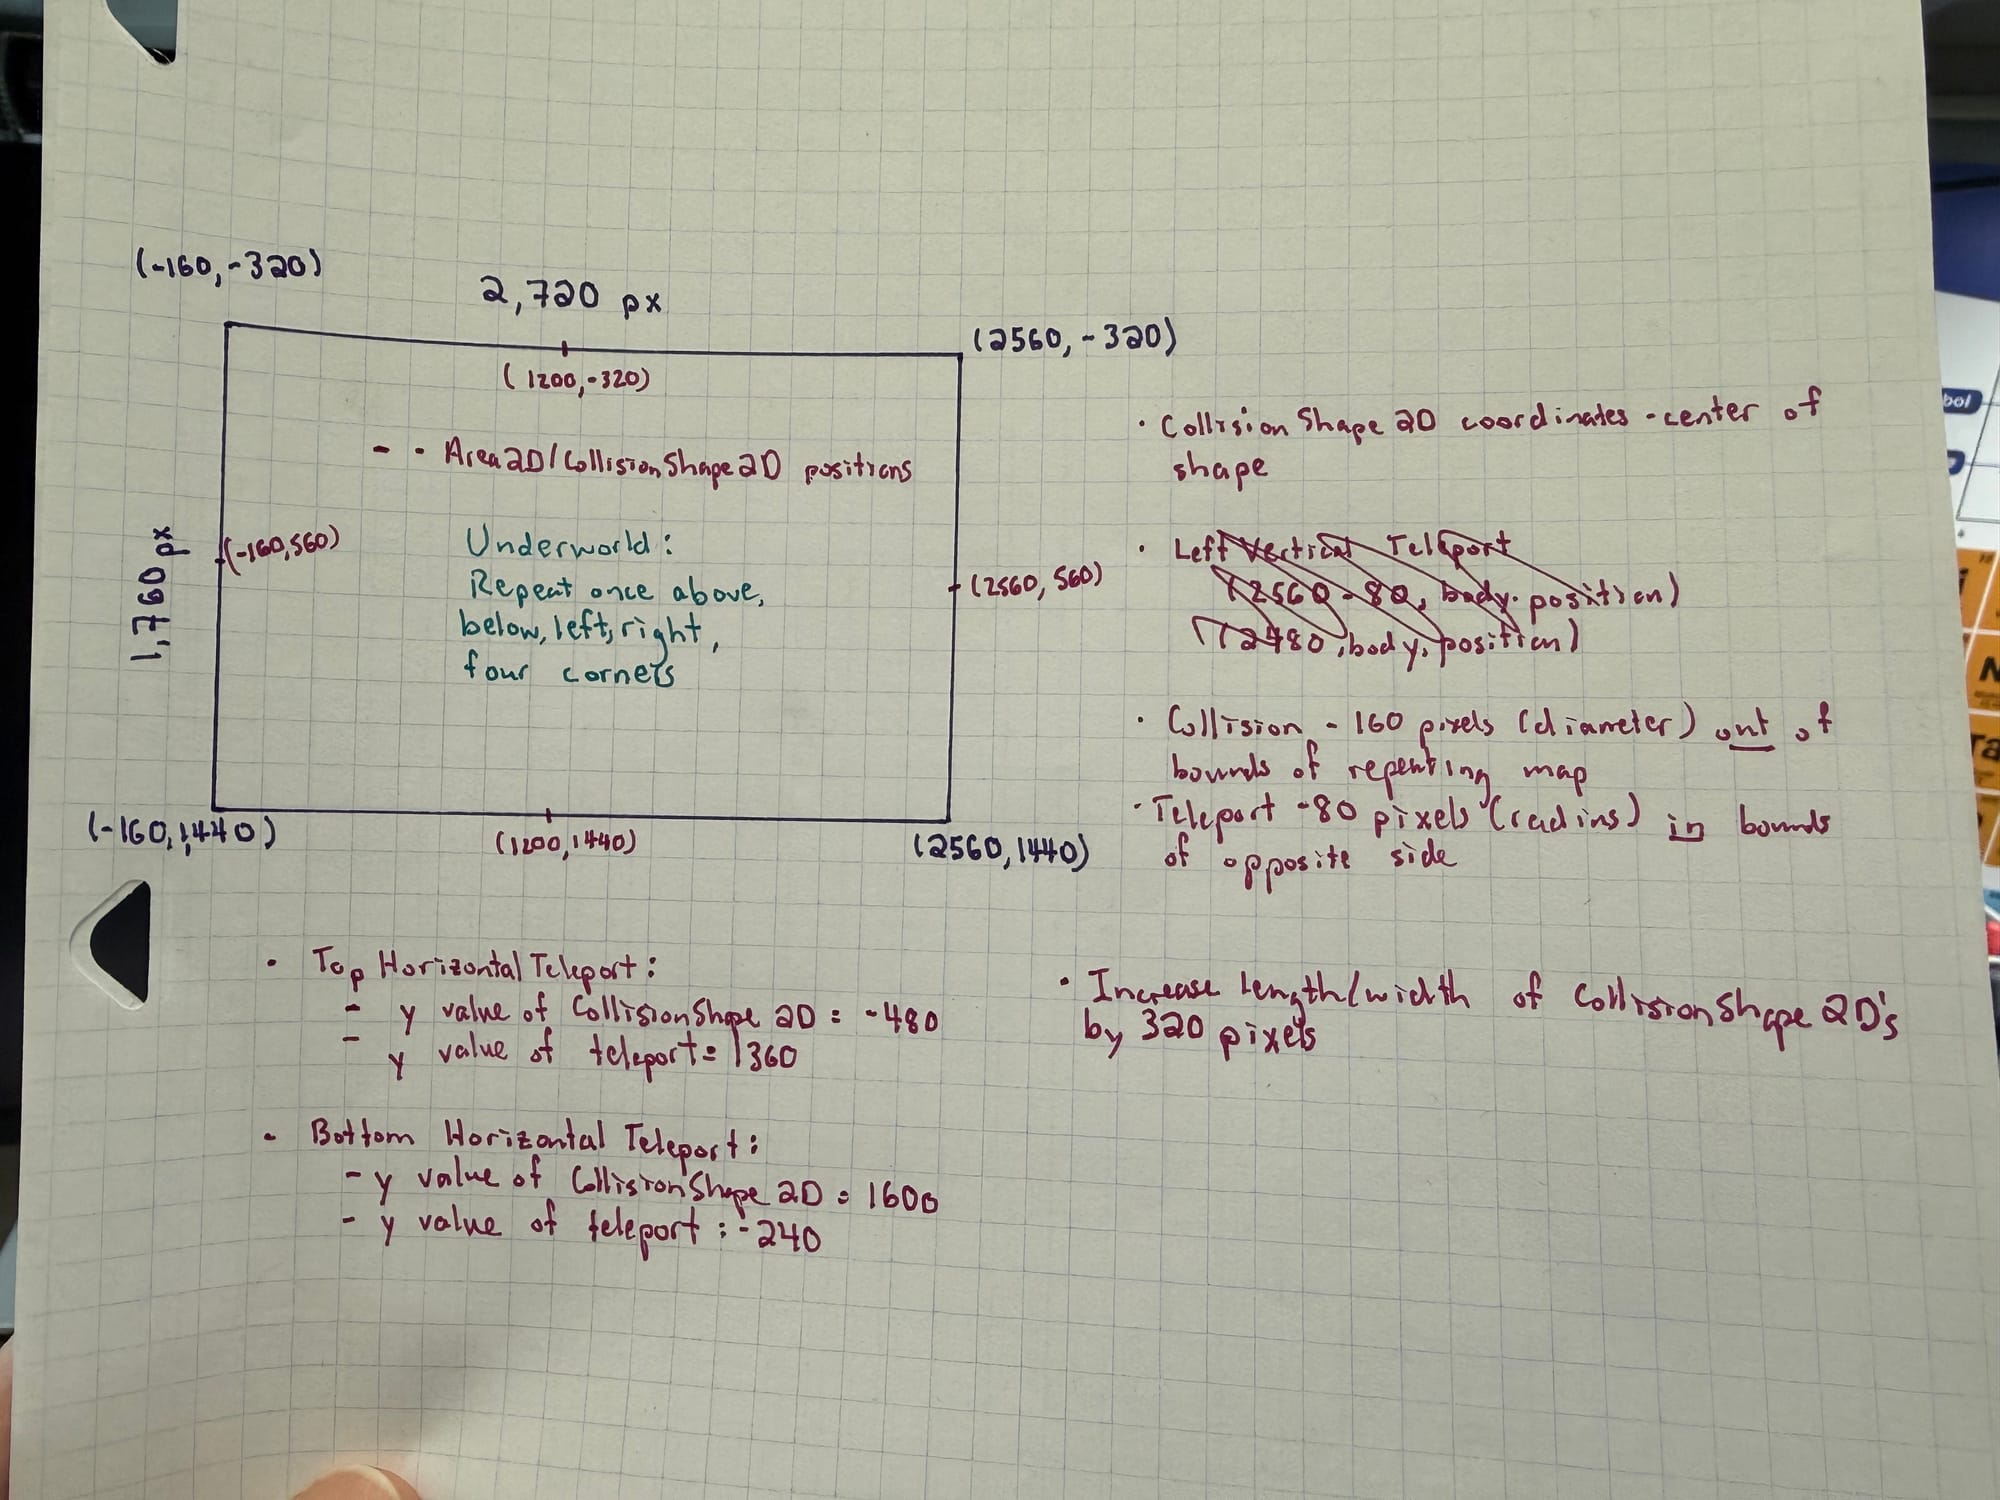 (-160,-320)
2,720 px
(2560,-320)
(1200,-320)
- · Area2D/CollisionShape2D positions
1,760 px
(-160,560)
(2560, 560)
Underworld:
Repeat once above,
below, left, right,
four corners
(-160,1440)
(1200,1440)
(2560,1440)
· CollisionShape2D coordinates - center of
shape
· Left Vertical Teleport
(2560-80, body.position)
(2480, body.position)
· Collision - 160 pixels (diameter) out of
bounds of repeating map
· Teleport -80 pixels (radius) in bounds
of opposite side
· Top Horizontal Teleport:
- y value of CollisionShape2D = -480
- y value of teleport = 1360
· Bottom Horizontal Teleport:
- y value of CollisionShape2D = 1600
- y value of teleport : -240
· Increase length/width of CollisionShape2D's
by 320 pixels
bol
N
Ta